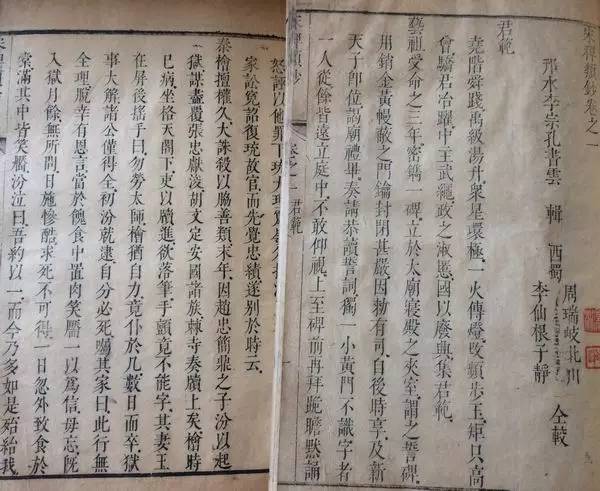 宋稗類鈔卷之一
邗水李宗孔書雲 輯 西蜀 周瑞岐北川
李仙根子靜 仝較
君範
堯階舜踐禹級湯升衆星環極一火傳燈敗類步王矩口高
曾驕君冶躍中主武繩政之淑慝國以廢興集君範
藝祖受命之三年密鐫一碑立於太廟寢殿之夾室謂之誓碑
用銷金黃幔蔽之門鑰封閉甚嚴因勅有司自後時享及新
天子卽位謁廟禮畢奏請恭讀誓詞獨一小黃門不識字者
一人從餘皆遠立庭中不敢仰視上至碑前再拜跪瞻默誦
卷之一 君範
怒誣以他罪下珫大理
家訟寃詔復珫故官而先覺忠績遂别於時云
秦檜擅權久大誅殺以脇善類末年因趙忠簡鼎之子汾以起
獄謀盡覆張忠獻浚胡文定安國諸族棘寺奏牘上矣檜時
已病坐格天閣下吏以牘進欲落筆手顫竟不能字其妻王
在屏後搖手曰勿勞太師檜猶自力竟仆於几數日而卒獄
事大解諸公僅得全初汾就逮自分必死囑其家曰此行無
全理脫幸有恩言當於餽食中置肉笑靨一以爲信毋忘旣
入獄月餘無所問日施慘酷求死不可得一日忽外致食於
棠滿其中皆笑靨汾泣曰吾約以一而今乃多如是殆紿我